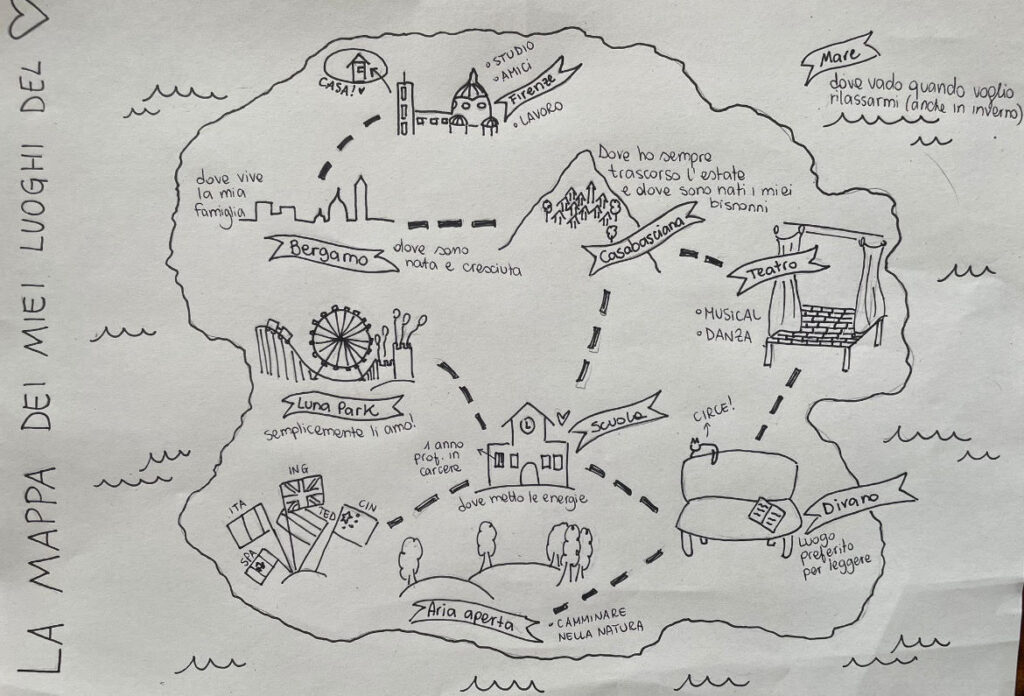 LA MAPPA DEI MIEI LUOGHI DEL
CASA!
STUDIO
AMICI
Firenze
LAVORO
Mare
dove vado quando voglio
rilassarmi (anche in inverno)
dove vive
la mia
famiglia
Bergamo
dove sono
nata e cresciuta
Dove ho sempre
trascorso l'estate
e dove sono nati i miei
bisnonni
Casabasciana
Teatro
MUSICAL
DANZA
Luna Park
semplicemente li amo!
Scuola
1 anno
prof. in
carcere
dove metto le energie
CIRCE!
Divano
Luogo
preferito
per leggere
ITA
ING
TED
CIN
SPA
Aria aperta
CAMMINARE
NELLA NATURA